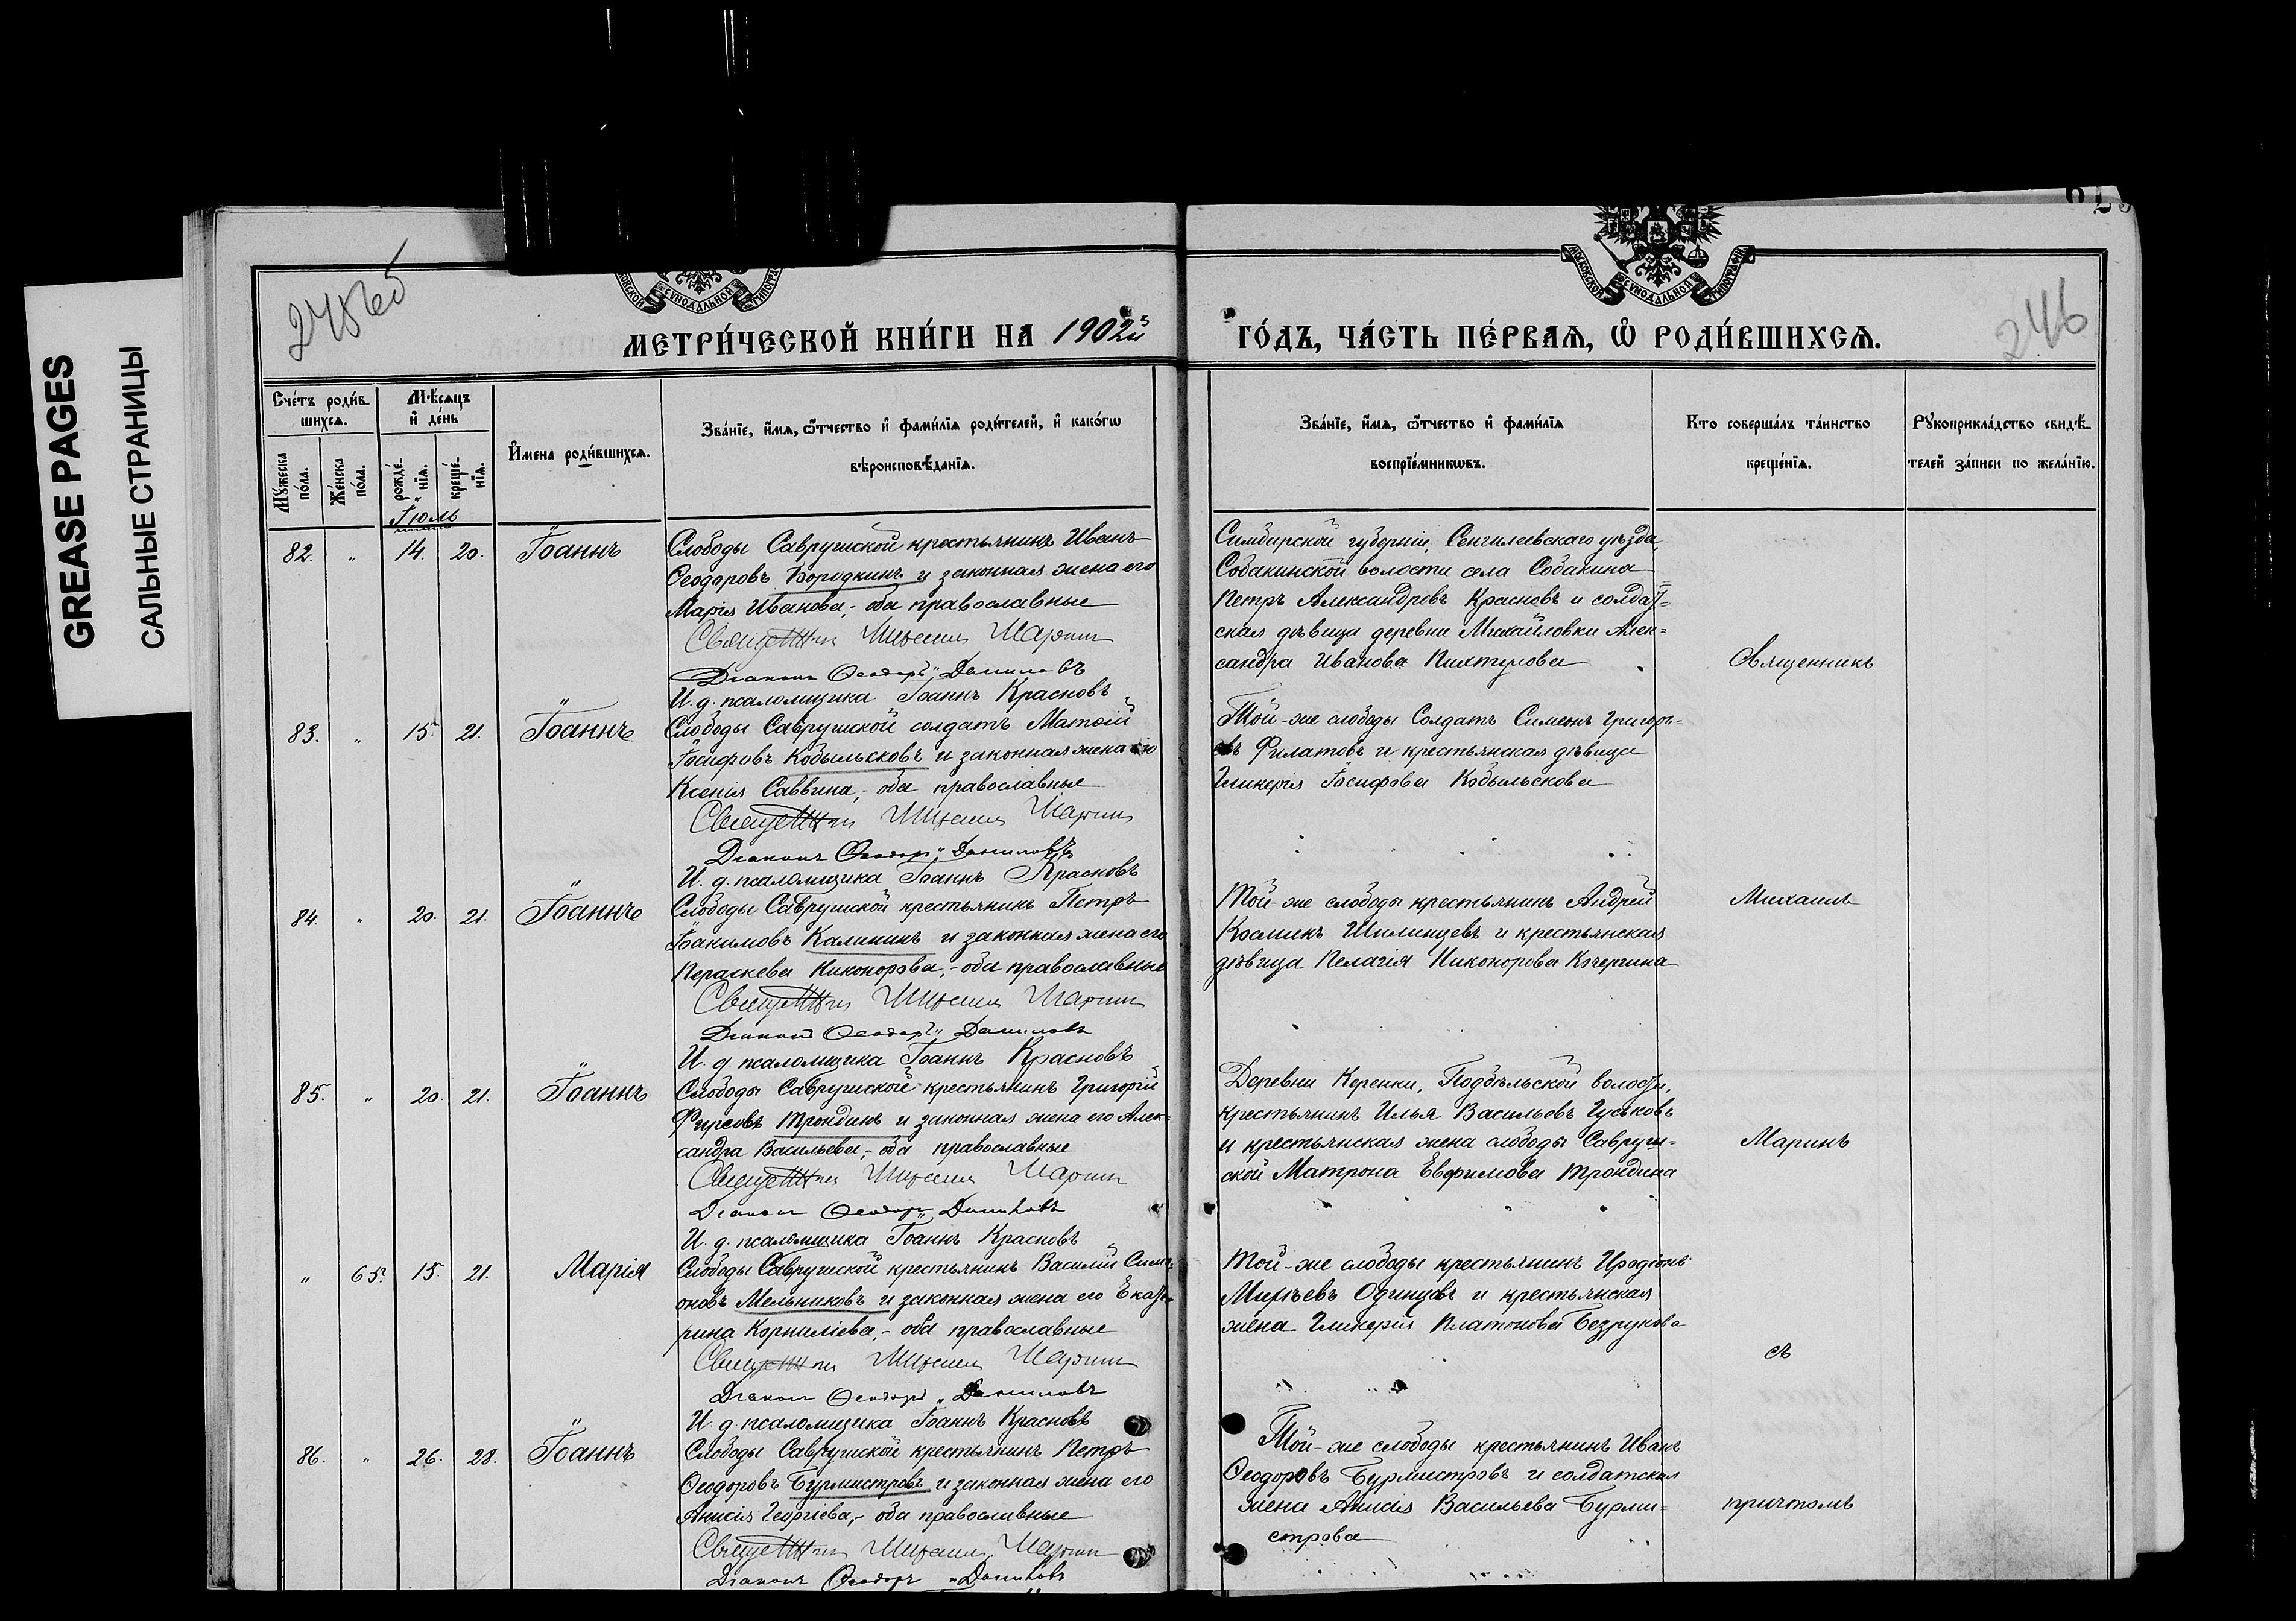 GREASE PAGES
САЛЬНЫЕ СТРАНИЦЫ
246
МОСКОВСКОЙ СУНОДАЛЬНОЙ ТИПОГРАФІИ
МЕТРИ́ЧЕСКОЙ КНИ́ГИ НА 1902й
ГО́ДЪ, ЧА́СТЬ ПЕ́РВАЯ, Ѡ҆ РОДИ́ВШИХСЯ.
Сче́тъ роди́в-
шихся.
Мѣ́сяцъ
и҆ де́нь
Мꙋ́жеска
по́ла.
Же́нска
по́ла.
рожде́-
нїя.
креще́-
нїя.
И҆мена роди́вшихся.
Зва́нїе, и҆́мя, ѻ҆́тчество и҆ фами́лїя роди́телей, и҆ како́гѡ
вѣроисповѣ́данїя.
Зва́нїе, и҆́мя, ѻ҆́тчество и҆ фами́лїя
воспрїе́мникѡвъ.
Кто соверша́лъ та́инство
креще́нїя.
Рꙋкоприкла́дство свидѣ́-
телей за́писи по жела́нїю.
Іюль
82. " 14. 20. Іоаннъ
Слободы Саврушской крестьянинъ Иванъ
Ѳеодоровъ Бородкинъ и законная жена его
Марія Иванова,- оба православные
Священник Михаил Марин
Діаконъ Ѳеодоръ Даниловъ
И. д. псаломщика Іоаннъ Красновъ
Симбирской губерніи, Сенгилеевскаго уѣзда,
Собакинской волости села Собакина
Петръ Александровъ Красновъ и солдат-
ская дѣвица деревни Михайловки Алек-
сандра Иванова Пихтулова
Священникъ
83. " 15. 21. Іоаннъ
Слободы Саврушской солдатъ Матѳій
Іосифовъ Кобыльсковъ и законная жена его
Ксенія Саввина,- оба православные
Священник Михаил Марин
Діаконъ Ѳеодоръ Даниловъ
И. д. псаломщика Іоаннъ Красновъ
Той-же слободы Солдатъ Симеонъ Григорь-
евъ Филатовъ и крестьянская дѣвица
Гликерія Іосифова Кобыльскова
84. " 20. 21. Іоаннъ
Слободы Саврушской крестьянинъ Петръ
Іоакимовъ Калининъ и законная жена его
Параскева Никонорова,- оба православные
Священник Михаил Марин
Діаконъ Ѳеодоръ Даниловъ
И. д. псаломщика Іоаннъ Красновъ
Той-же слободы крестьянинъ Андрей
Косминъ Шилинцевъ и крестьянская
дѣвица Пелагія Никонорова Кочергина
Михаилъ
85. " 20. 21. Іоаннъ
Слободы Саврушской крестьянинъ Григорій
Фирсовъ Трондинъ и законная жена его Алек-
сандра Васильева,- оба православные
Священник Михаил Марин
Діаконъ Ѳеодоръ Даниловъ
И. д. псаломщика Іоаннъ Красновъ
Деревни Коренки, Подбѣльской волости,
крестьянинъ Илья Васильевъ Гуськовъ
и крестьянская жена слободы Савруш-
ской Матрона Евфимова Трондина
Маринъ
" 65. 15. 21. Марія
Слободы Саврушской крестьянинъ Василій Сим-
оновъ Мельниковъ и законная жена его Екате-
рина Корниліева,- оба православные
Священник Михаил Марин
Діаконъ Ѳеодоръ Даниловъ
И. д. псаломщика Іоаннъ Красновъ
Той-же слободы крестьянинъ Иродіонъ
Одинцовъ и крестьянская
жена Гликерія Платонова Безрукова
съ
86. " 26. 28. Іоаннъ
Слободы Саврушской крестьянинъ Петръ
Ѳеодоровъ Бурмистровъ и законная жена его
Анисія Георгіева,- оба православные
Священник Михаил Марин
Діаконъ Ѳеодоръ Даниловъ
Той-же слободы крестьянинъ Иванъ
Ѳеодоровъ Бурмистровъ и солдатская
жена Анисія Васильева Бурми-
строва
причтомъ